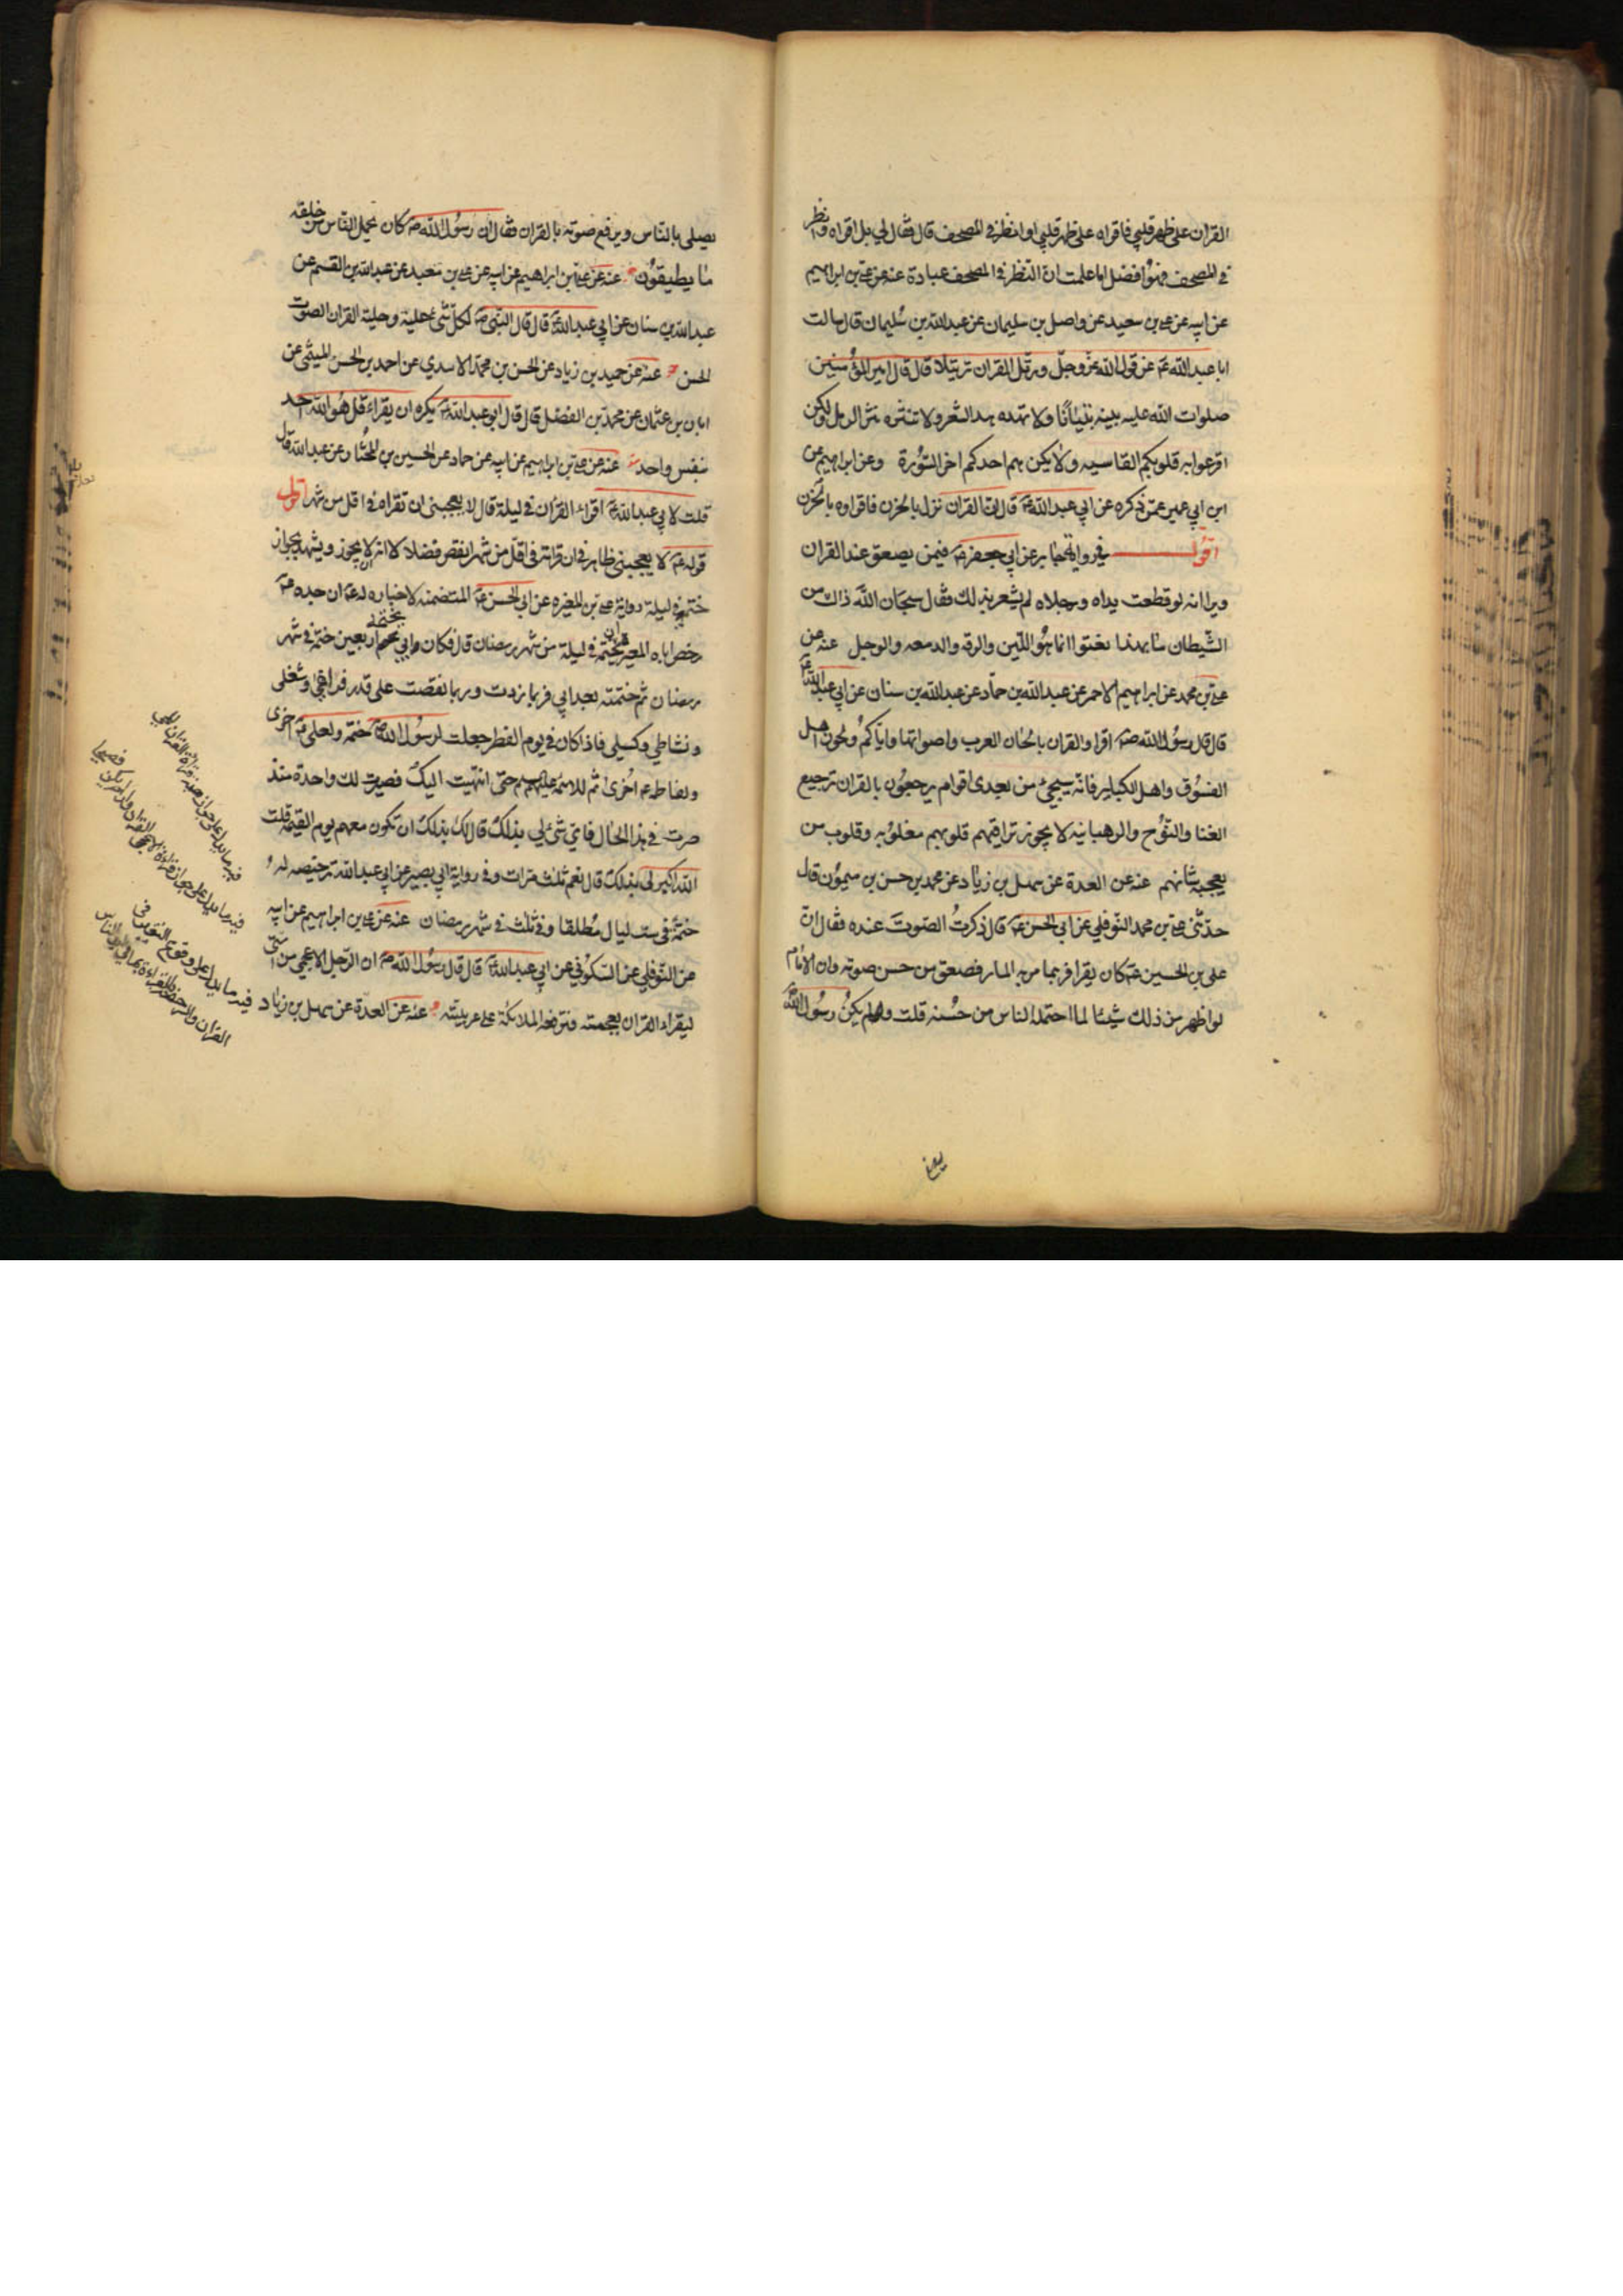 القران على ظهر قلبي فاقراه على ظهر قلبي او انظر في المصحف قال فقال لي بل اقراه وانظر
في المصحف فهو افضل اما علمت ان النظر في المصحف عبادة عنه عن علي بن ابراهيم
عن ابيه عن علي بن سعيد عن واصل بن سليمان عن عبد الله بن سليمان قال سالت
ابا عبد الله ع عن قول الله عز وجل ورتل القران ترتيلا قال قال امير المؤمنين
صلوات الله عليه بينه تبيانا ولا تهذه هذ الشعر ولا تنثره نثر الرمل ولكن
اقرعوا به قلوبكم القاسيه ولا يكن هم احدكم اخر السورة وعن ابراهيم عن
ابن ابي عمير عمن ذكره عن ابي عبد الله ع قال ان القران نزل بالحزن فاقراوه بالحزن
اقول في رواية جابر عن ابي جعفر ع فيمن يصعق عند القران
ويرا انه لو قطعت يداه ورجلاه لم يشعر بذلك فقال سبحان الله ذاك من
الشيطان ما بهذا نعتوا انما هو اللين والرقه والدمعه والوجل عنه عن
علي بن محمد عن ابراهيم الاحمر عن عبد الله بن حماد عن عبد الله بن سنان عن ابي عبد الله ع
قال قال رسول الله ص اقراوالقران بالحان العرب واصواتها واياكم ولحون اهل
الفسوق واهل الكباير فانه سيجئ من بعدى اقوام يرجعون بالقران ترجيع
الغنا والنوح والرهبانيه لا يجوز تراقيهم قلوبهم مقلوبه وقلوب من
يعجبه شانهم عنه عن العدة عن سهل بن زياد عن محمد بن حسن بن شمون قال
حدثني علي بن محمد النوفلي عن ابي الحسن ع قال ذكرت الصوت عنده فقال ان
علي بن الحسين ع كان يقرا فربما مر به المار فصعق من حسن صوته وان الامام
لو اظهر من ذلك شيئا لما احتمله الناس من حسنه قلت ولم يكن رسول الله
يصلى
يصلى بالناس ويرفع صوته بالقران فقال ان رسول الله ص كان يحمل الناس من خلقه
ما يطيقون عنه عن علي بن ابراهيم عن ابيه عن علي بن معبد عن عبد الله بن القسم عن
عبد الله بن سنان عن ابي عبد الله ع قال قال النبي ص لكل شئ حلية وحلية القران الصوت
الحسن عنه عن حميد بن زياد عن الحسن بن محمد الاسدي عن احمد بن الحسن الميثمي عن
ابان بن عثمان عن محمد بن الفضل قال قال ابو عبد الله ع يكره ان يقراء قل هو الله احد
بنفس واحد عنه عن علي بن ابراهيم عن ابيه عن حماد عن الحسين بن المختار عن عبد الله قال
قلت لابي عبد الله ع اقراء القران في ليلة قال لا يعجبنى ان تقراه في اقل من شهر اقول
قوله ع لا يعجبني ظاهر في ان قراته في اقل من شهر انقص فضلا لا انه لا يجوز ويشهد بجواز
ختمه في ليلة رواية علي بن المغيره عن ابي الحسن ع المتضمنه لاخباره له ع ان جده ع
رخص اباه المغير في ليلة من شهر رمضان قال فكان ابي يختمه اربعين ختمة في شهر
رمضان ثم ختمته بعد ابي فربما زدت وربما نقصت على قدر فراغي وشغلى
ونشاطي وكسلي فاذا كان في يوم الفطر جعلت لرسول الله ص ختمه ولعلي ع اخرى
ولفاطمه اخرى ثم للائمة عليهم حتى انتهيت اليك فصيرت لك واحدة منذ
صرت في هذا الحال فاي شئ لي بذلك قال لك بذلك ان تكون معهم يوم القيمة قلت
الله اكبر لى بذلك قال نعم ثلث مرات وفي رواية ابي بصير عن ابي عبد الله ترخيصه له
ختمه في ست ليال مطلقا وفي ثلث في شهر رمضان عنه عن علي بن ابراهيم عن ابيه
عن النوفلي عن السكوني عن ابي عبد الله ع قال قال رسول الله ص ان الرجل الاعجمي من امتي
ليقراء القران بعجمته فترفعه الملائكة على عربيته عنه عن العدة عن سهل بن زياد